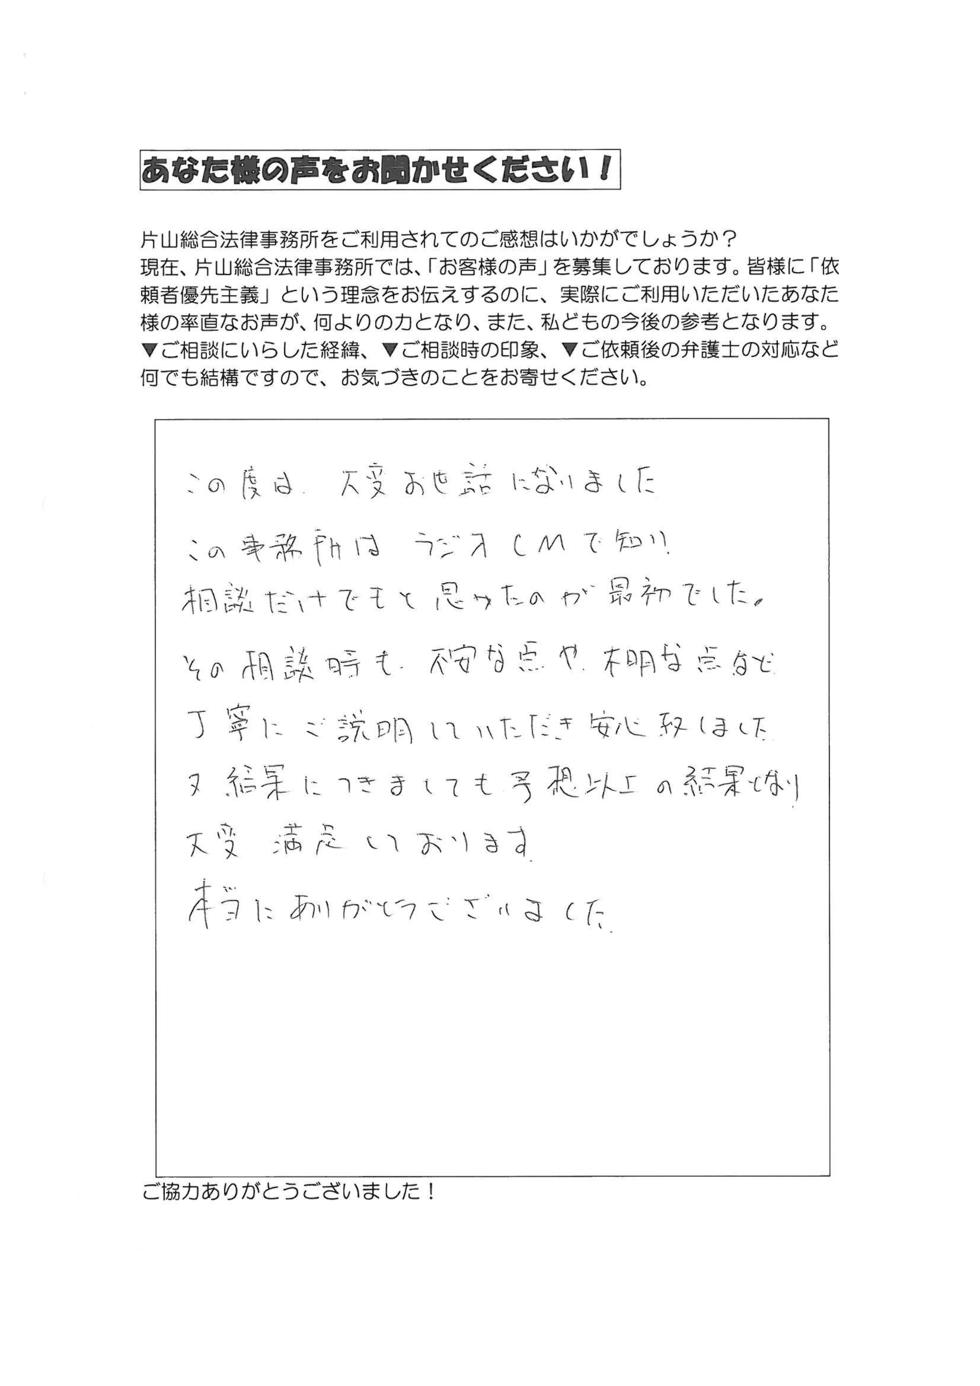 あなた様の声をお聞かせください！
片山総合法律事務所をご利用されてのご感想はいかがでしょうか？
現在、片山総合法律事務所では、「お客様の声」を募集しております。皆様に「依
頼者優先主義」という理念をお伝えするのに、実際にご利用いただいたあなた
様の率直なお声が、何よりの力となり、また、私どもの今後の参考となります。
▼ご相談にいらした経緯、▼ご相談時の印象、▼ご依頼後の弁護士の対応など
何でも結構ですので、お気づきのことをお寄せください。
この度は、大変お世話になりました
この事務所は ラジオCMで知り、
相談だけでもと思ったのが最初でした。
その相談時も、不安な点や、不明な点など
丁寧にご説明していただき安心致しました
又 結果につきましても予想以上の結果となり
大変 満足しております。
本当にありがとうございました。
ご協力ありがとうございました！